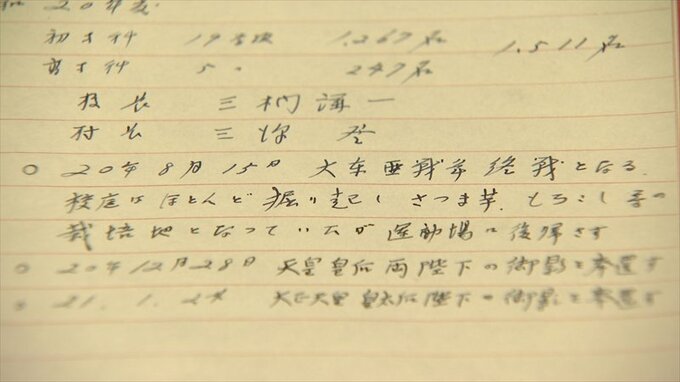 和20年度
初等科 19学級 1,267名 1,511名
高等科 5〃 247名
校長 三
村長 三
○ 20年8月15日 大東亜戦争終戦となる
校庭はほとんど掘り起しさつま芋、もろこし等の
栽培地となっていたが運動場に復帰さす
○ 20年12月28日 天皇皇后両陛下の御影を奉還す
○ 21.1.24 大正天皇皇太后陛下の御影を奉還す